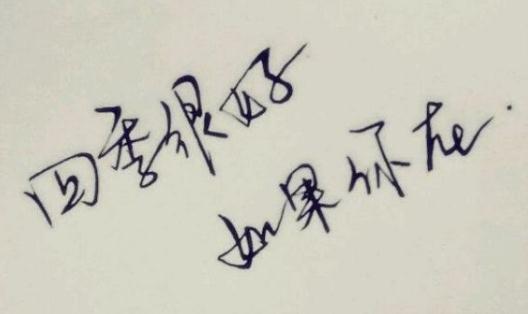 四季很好
如果你在.